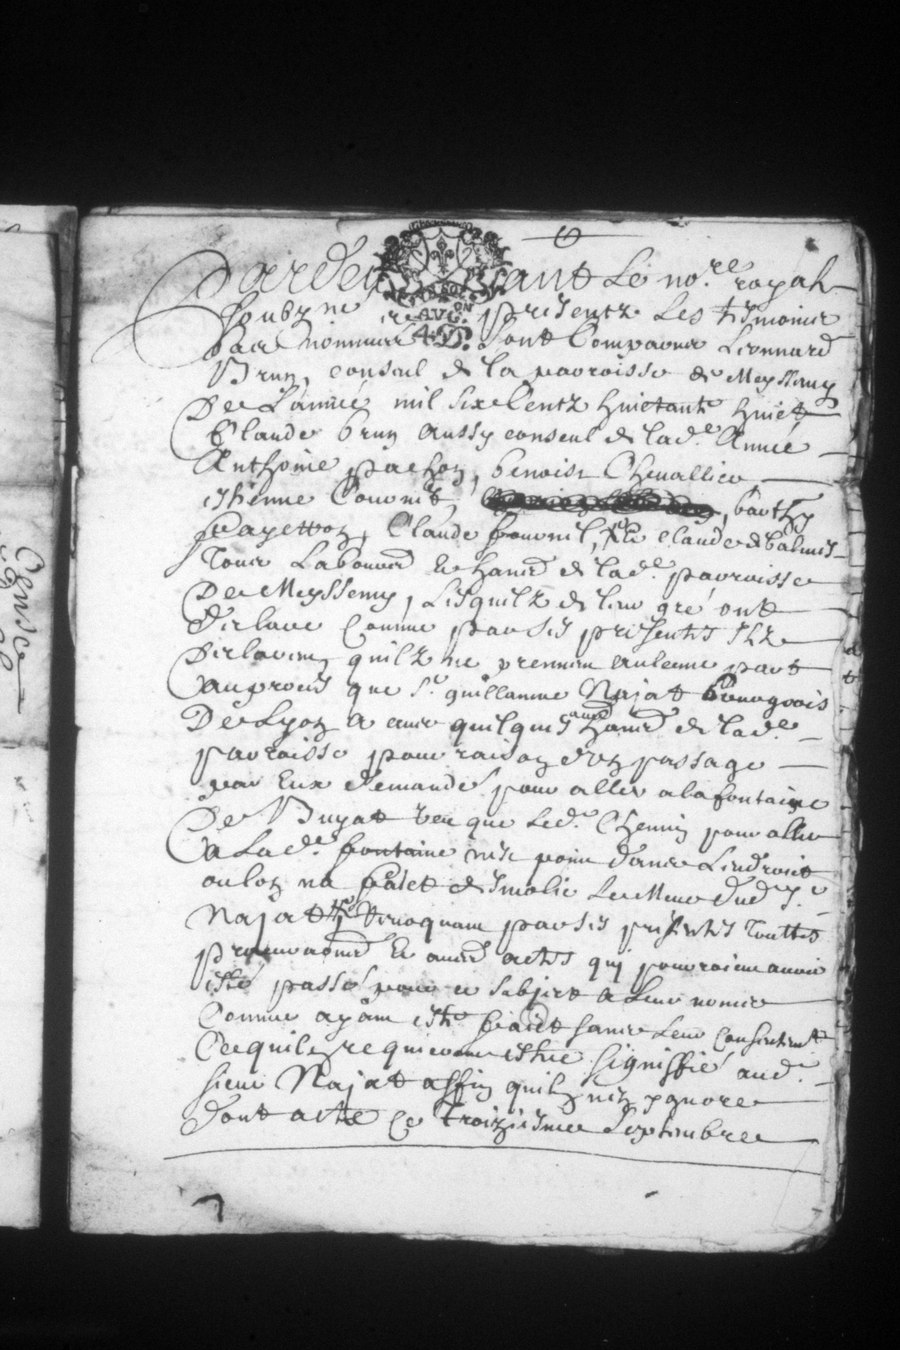 Pardevant Le no.re royal
soubz ne presentz Les tesmoins
bas nommes sont Comparus Leonnard
Brun, consul de la parroisse de Meyssemy
De L'année mil six Centz huictante huict
Claude brun aussy consul de lad.e Année
Anthoine pachon, benoist Chevallier
estienne Couvret, barthy
payetton, Claude fournil, & claude de balmes
Tous Laboureurs & hans de lad.e parroisse
De Meyssemy, Lesquelz de leur gré ont
declaré Comme par ses presentes Ilz
Declarent quilz ne prennent aulcune part
au proces que Sr. guillaume Najat bourgeois
De Lyon a avec quelques aures hans de lad.e
parroisse pour raison d'un passage
par Eux demandé pour aller a la fontaine
De Buyat veu que Led. Chemin pour aller
a La d.e fontaine nest point dans Lendroict
ou lon na faict desmolir Le Meur dud. Sr.
Najat Revoquant par ses presentes Touttes
procurations & aures actes quj pourroient avoir
esté passés pour ce subject a Leur nom
Comme ayant esté faict sans Leur Consentement
Ce quilz requierent estre signiffié aud.
sieur Najat affin quil nen ignore
Dont acte Ce Troiziesme Septembre